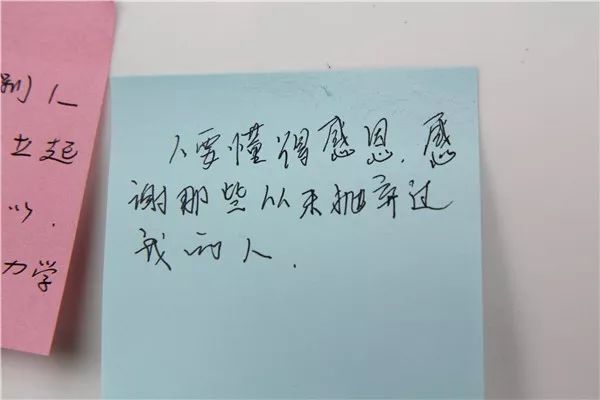 别人
立起
以.
力学
人要懂得感恩.感
谢那些从未抛弃过
我的人.